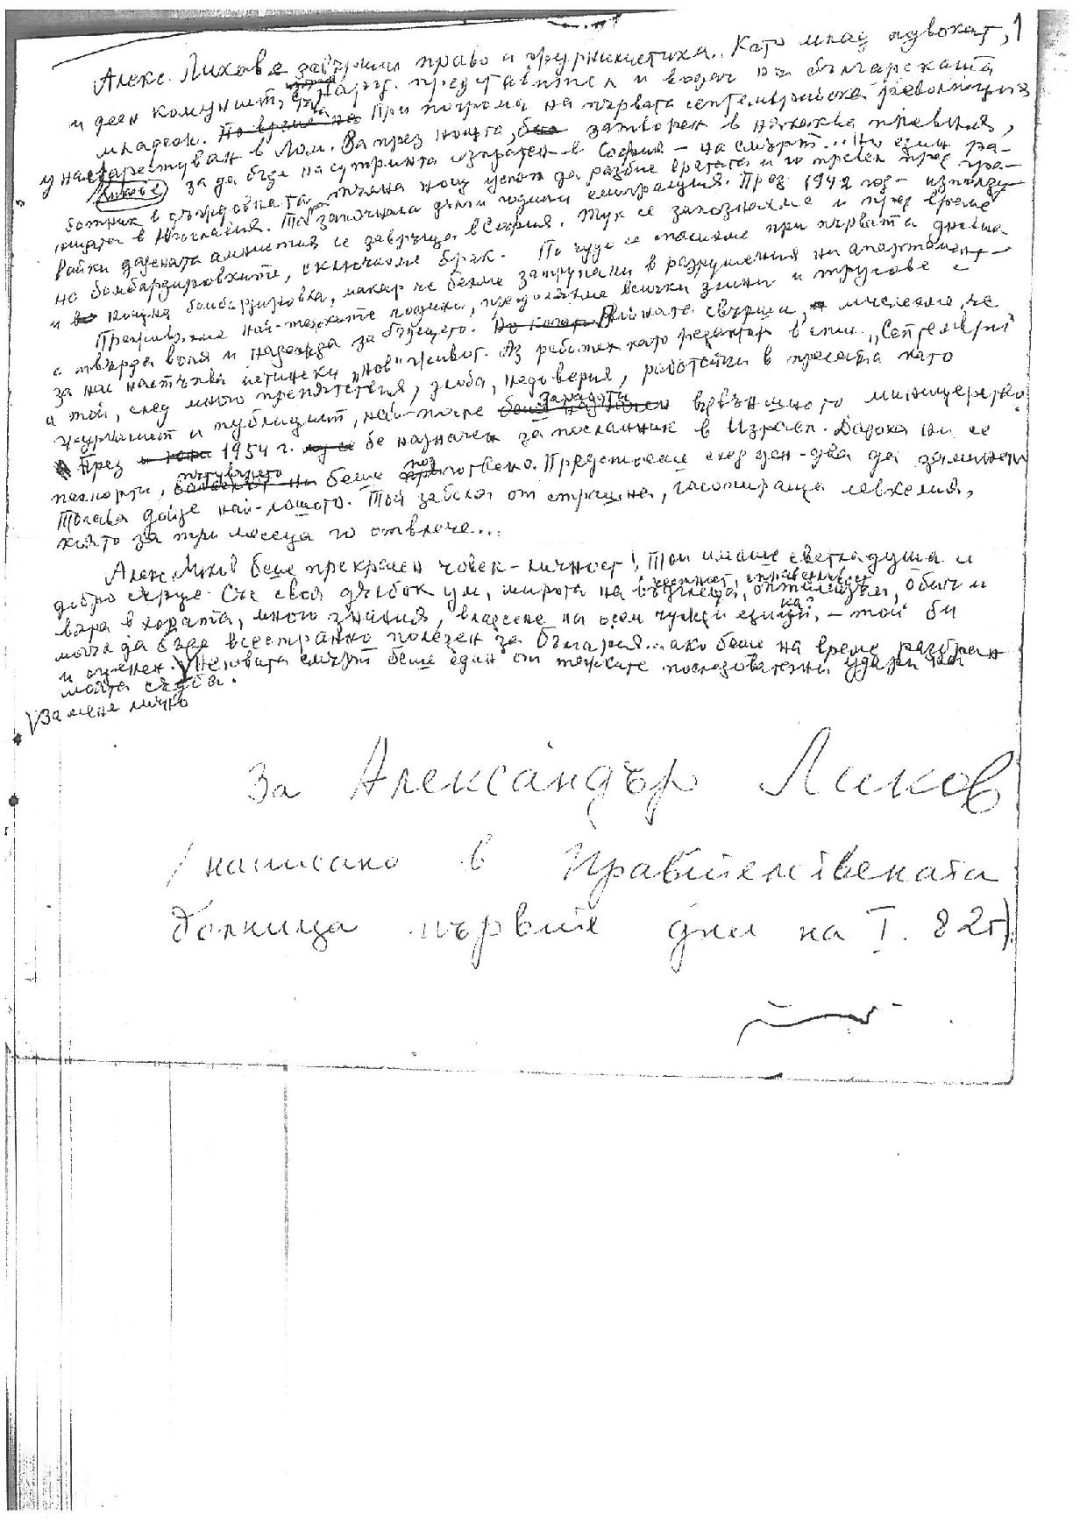 Алекс. Ликов е завършил право и журналистика. Като млад адвокат, 1
и деен комунист, е нар. представител и водач на българската
младеж. По време на При погрома на първата септемврийска революция
у нас арестуван в Лом. Запрез нощта, бил затворен в някаква
Ликов за да бъде на сутринта изпратен в София – на смърт... Но един ра-
ботник в същата нощ успял да разбие вратата и го превел през гра-
ницата в Югославия. Така започнала дълги години емиграция. През 1942 год – използу-
вайки дадената амнистия се завръща в София. Тук се запознахме и през време
на бомбардировките, сключихме брак. По чудо се спасихме при първата дневна
и нощна бомбардировка, макар че бяхме затрупани в разрушения ни апартамент –
Преживяхме най-тежките години, преодоляхме всички злини и трудове с
с твърда воля и надежда за бъдещето. Войната свърши, и мислехме, че
за нас настъпва истински „нов" живот. Аз работех като редактор в спис. „Септември"
а той, след много препятствия, злоба, недоверия, работейки в пресата като
журналист и публицист, най-после заработи в външното министерство
През 1954 г. бе назначен за посланник в Израел. Дадоха ни се
паспорти, пътуването ни беше готвено. Предстоеше след ден-два да заминем
Тогава дойде най-лошото. Той заболя от страшна, галопираща левкемия,
която за три месеца го отвлече...
Алекс. Ликов беше прекрасен човек – личност! Той имаше светла душа и
добро сърце. Със своя дълбок ум, широта на възгледи, честност, справедливост, оптимизъм, обич и
вяра в хората, много знания, владеене на осем чужди езици, – той би
могъл да бъде всестранно полезен за България... ако беше на време разбран
и оценен. Неговата смърт беше един от тежките последователни удари на
моята съдба.
За мене лично
За Александър Ликов
/написано в Правителствената
болница първите дни на I. 82 г).